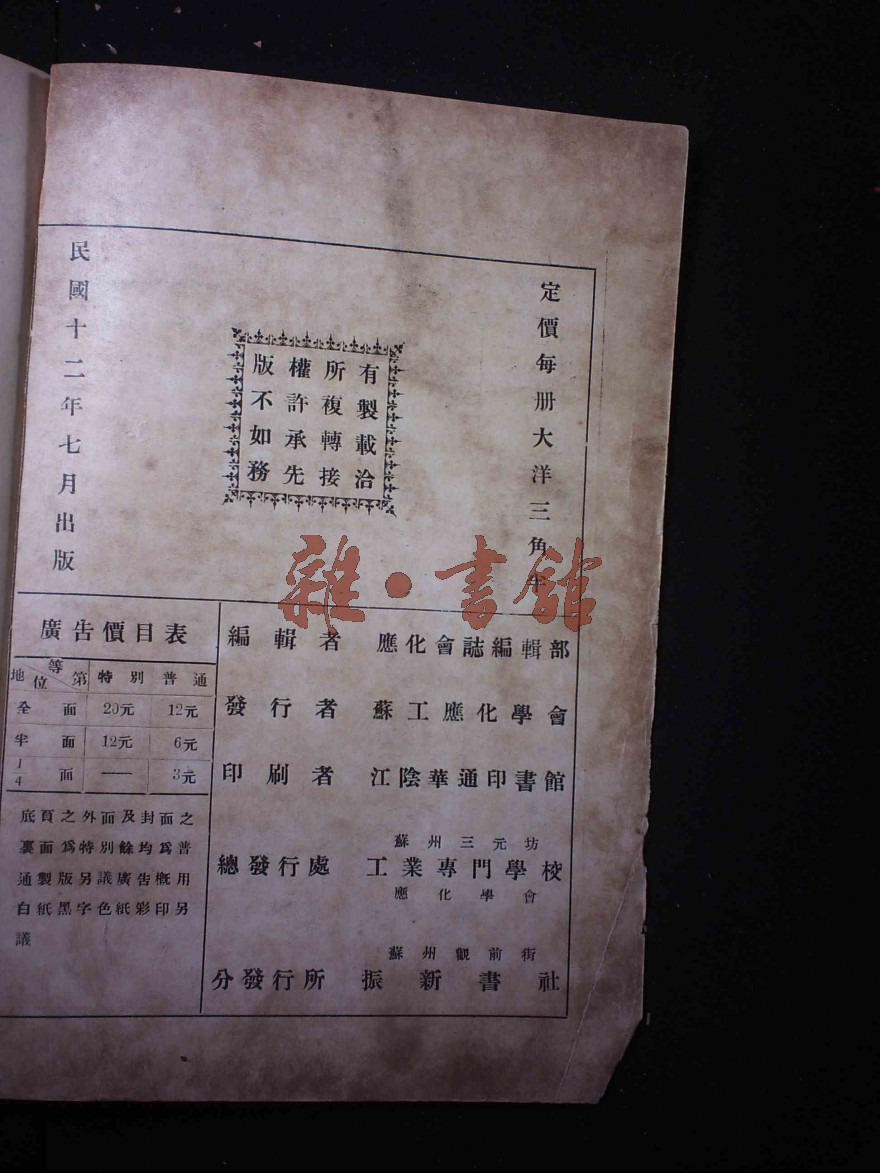 定價每册大洋三角半
版權所有
不許複製
如承轉載
務先接洽
民國十二年七月出版
雜·書館
編輯者 應化會誌編輯部
發行者 蘇工應化學會
印刷者 江陰華通印書館
蘇州三元坊
總發行處 工業專門學校
應化學會
蘇州觀前街
分發行所 振新書社
廣告價目表
地位 等第 特別 普通
全面 20元 12元
半面 12元 6元
1/4面 —— 3元
底頁之外面及封面之
裏面爲特別餘均爲普
通製版另議廣告槪用
白紙黑字色紙彩印另
議